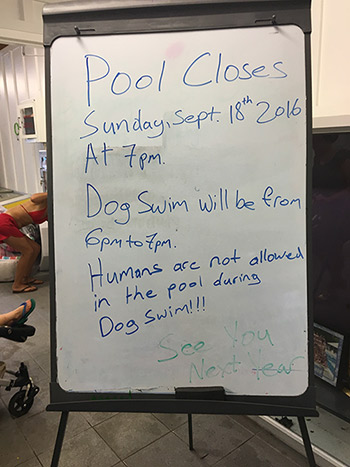 Pool Closes
Sunday, Sept. 18th 2016
At 7pm.
Dog Swim will be from
6pm to 7pm.
Humans are not allowed
in the pool during
Dog Swim!!!
See You
Next Year